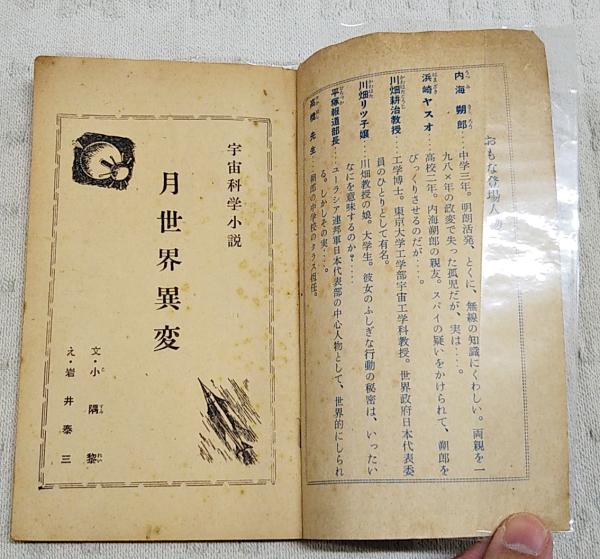 おもな登場人物
内海朔郎…中学三年。明朗活発、とくに、無線の知識にくわしい。両親を一
九八×年の政変で失った孤児だが、実は…。
浜崎ヤスオ…高校二年。内海朔郎の親友。スパイの疑いをかけられて、朔郎を
びっくりさせるのだが…。
川畑耕治教授…工学博士。東京大学工学部宇宙工学科教授。世界政府日本代表委
員のひとりとして有名。
川畑リツ子嬢…川畑教授の娘。大学生。彼女のふしぎな行動の秘密は、いったい
なにを意味するのか?…
平塚報道部長…ユーラシア連邦軍日本代表部の中心人物として、世界的にしられ
る。しかしその実…。
高橋先生…朔郎の中学校のクラス担任。
宇宙科学小説
月世界異変
文・小隅黎
え・岩井泰三